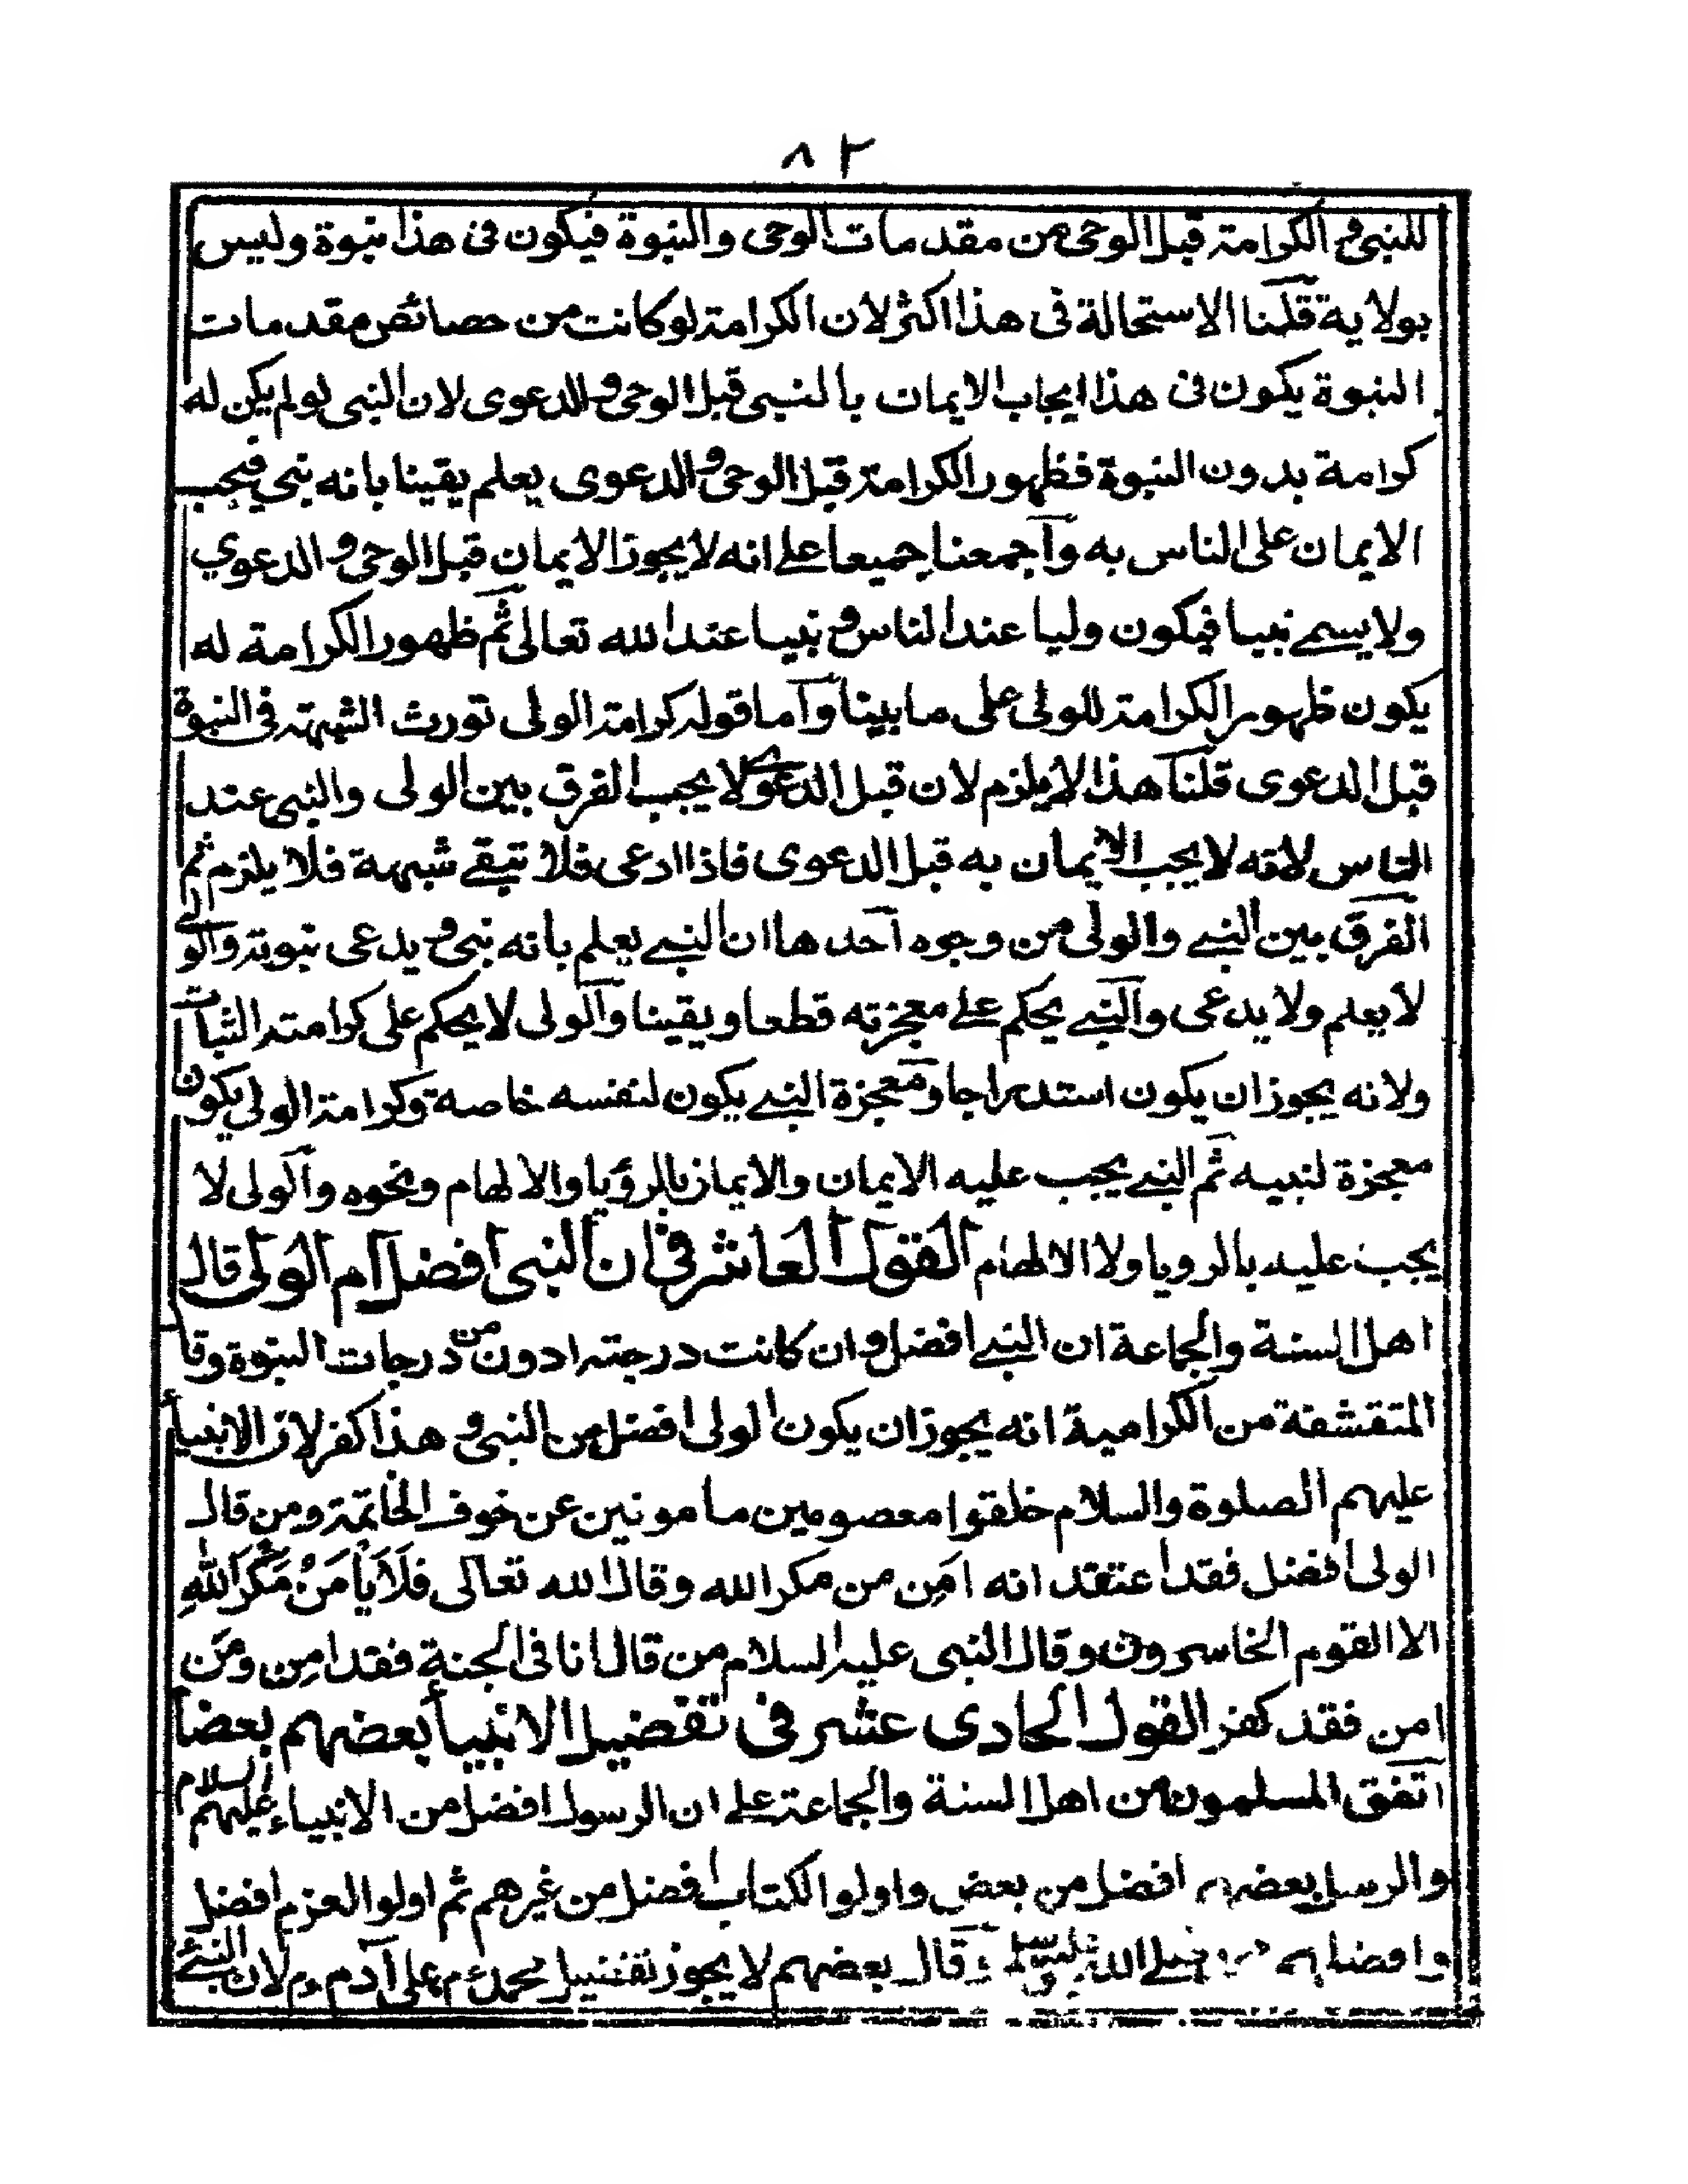 ٨٢
للنبى و الكرامة قبل الوحى من مقدمات الوحى والنبوة فيكون فى هذا نبوة وليس
بولاية قلنا الاستحالة فى هذا اكثر لان الكرامة لو كانت من خصائص مقدمات
النبوة يكون فى هذا ايجاب الايمان بالنبى قبل الوحى و الدعوى لان النبى لو لم يكن له
كرامة بدون النبوة فظهور الكرامة قبل الوحى و الدعوى يعلم يقينا بانه نبى فيجب
الايمان على الناس به وأجمعنا جميعا على انه لا يجوز الايمان قبل الوحى و الدعوي
ولا يسمى نبيا فيكون وليا عند الناس و نبيا عند الله تعالى ثم ظهور الكرامة له
يكون ظهور الكرامة للولى على ما بينا وأما قوله كرامة الولى تورث الشبهة فى النبوة
قبل الدعوى قلنا هذا لا يلزم لان قبل الدعوى لا يجب الفرق بين الولى والنبى عند
الناس لانه لا يجب الايمان به قبل الدعوى فاذا ادعى فلا تبقى شبهة فلا يلزم ثم
الفرق بين النبى والولى من وجوه آحدها ان النبى يعلم بانه نبى و يدعى نبوته والولى
لا يعلم ولا يدعى والنبى يحكم على معجزته قطعا ويقينا والولى لا يحكم على كرامته الثبات
ولانه يجوز ان يكون استدراجا ومعجزة النبى يكون لنفسه خاصة وكرامة الولى يكون
معجزة لنبيه ثم النبى يجب عليه الايمان والايمان بالرؤيا والالهام ونحوه والولى لا
يجب عليه بالرويا ولا الالهام القول العاشر فى ان النبى افضل أم الولى قال
اهل السنة والجماعة ان النبى افضل و ان كانت درجته ادون من درجات النبوة وقا
المتقشفة من الكرامية انه يجوز ان يكون الولى افضل من النبى و هذا كفر لان الانبياء
عليهم الصلوة والسلام خلقوا معصومين مامونين عن خوف الخاتمة ومن قال
الولى افضل فقد اعتقد انه امَن من مكر الله وقال الله تعالى فَلَا يَأمَنُ مَكْرَ اللهِ
الا القوم الخاسرون وقال النبى عليه السلام من قال انا فى الجنة فقد امن ومَن
امن فقد كفر القول الحادى عشر فى تفضيل الانبياء بعضهم بعضا
اتفق المسلمون من اهل السنة والجماعة على ان الرسول افضل من الانبياء عليهم السلام
والرسل بعضهم افضل من بعض واولو الكتاب افضل من غيرهم ثم اولوا العزم افضل
وافضلهم صلى الله عليه وسلم و قال بعضهم لا يجوز تفضيل محمد م على آدم م لان النبى